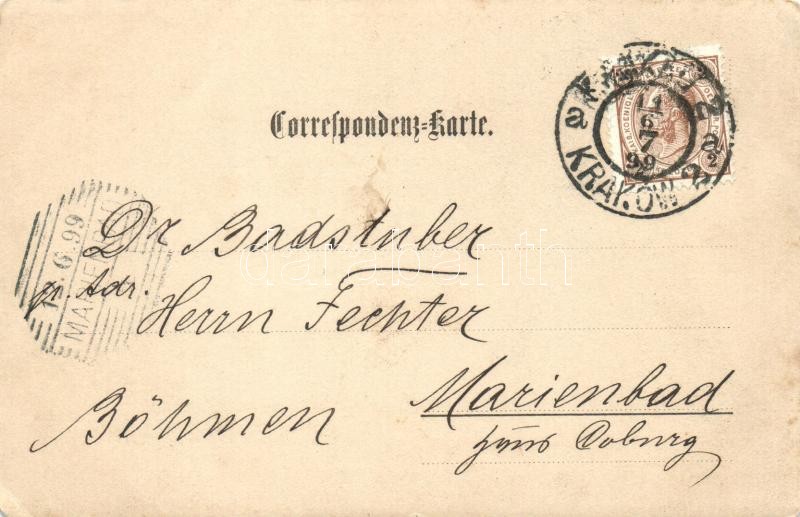 Correspondenz=Karte.
KRAKAU 2
14
6
7
99
KRAKÓW 2
6.99
MARIENBAD
Dr Badstuber
p. Adr.
Herrn Fechter
Marienbad
Böhmen
Haus Coburg
darabanth